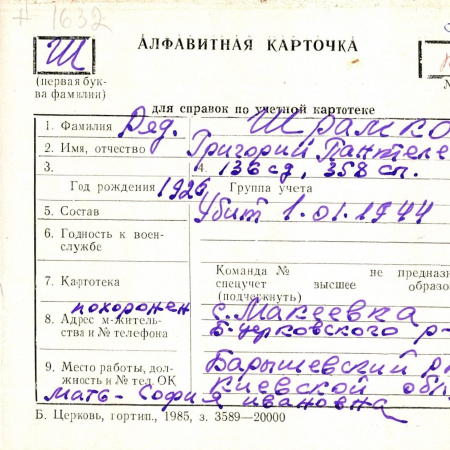 # 1632
Ш
АЛФАВИТНАЯ КАРТОЧКА
(первая бук-
ва фамилии)
для справок по учетной картотеке
1. Фамилия Ряд. Шрамко
2. Имя, отчество Григорий Пантеле
3. 4. 136 сд, 358 сп.
Год рождения 1926 Группа учета
5. Состав Убит 1.01.1944
6. Годность к воен-
службе
7. Картотека
Команда № не предназн
спецучет высшее образо
(подчеркнуть)
похоронен с. Макеевка
8. Адрес м-житель-
ства и № телефона
Б-церковского р-
9. Место работы, дол-
жность и № тел. ОК
Барышевский р
Киевской обл.
Мать - София Ивановна
Б. Церковь, гортип., 1985, з. 3589—20000